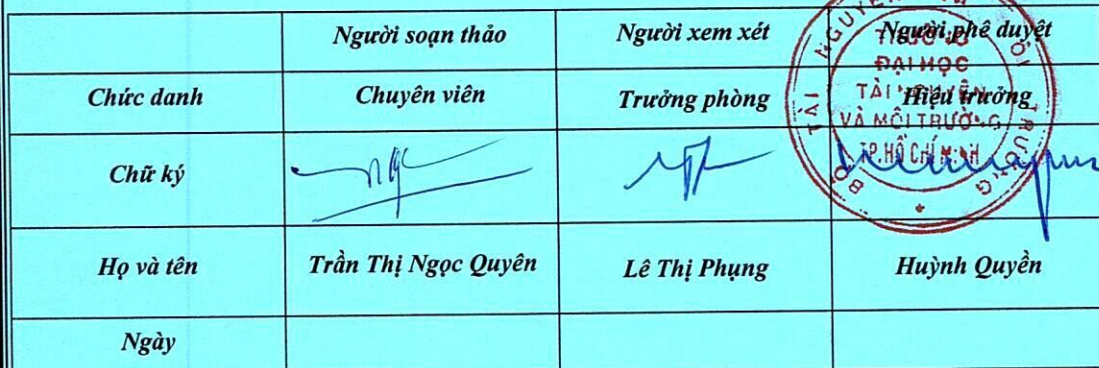 Người soạn thảo Người xem xét Người phê duyệt
Chức danh Chuyên viên Trưởng phòng Hiệu trưởng
Chữ ký
Họ và tên Trần Thị Ngọc Quyên Lê Thị Phụng Huỳnh Quyền
Ngày
BỘ TÀI NGUYÊN TRƯỜNG
TRƯỜNG
ĐẠI HỌC
TÀI NGUYÊN
VÀ MÔI TRƯỜNG
TP.HỒ CHÍ MINH